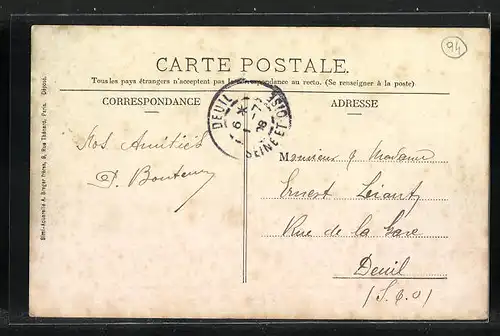 94
CARTE POSTALE.
Tous les pays étrangers n'acceptent pas la correspondance au recto. (Se renseigner à la poste)
CORRESPONDANCE
ADRESSE
DEUIL
SEINE-ET-OISE
Nos Amitiés
Monsieur & Madame
Ernest
Rue de la Gare
Deuil
(S.&O)
Simi-Aquarelle A. Breger Frères, 9, Rue Thénard, Paris. Déposé.